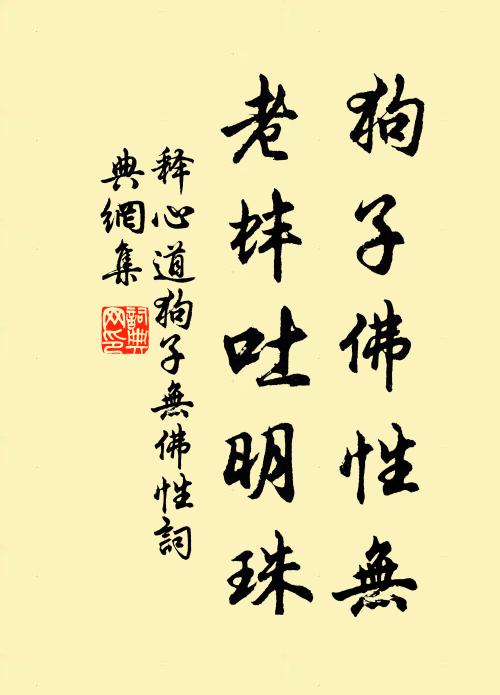 狗子佛性無
老蚌吐明珠
释心道狗子無佛性詞
典網集
詞典
网印